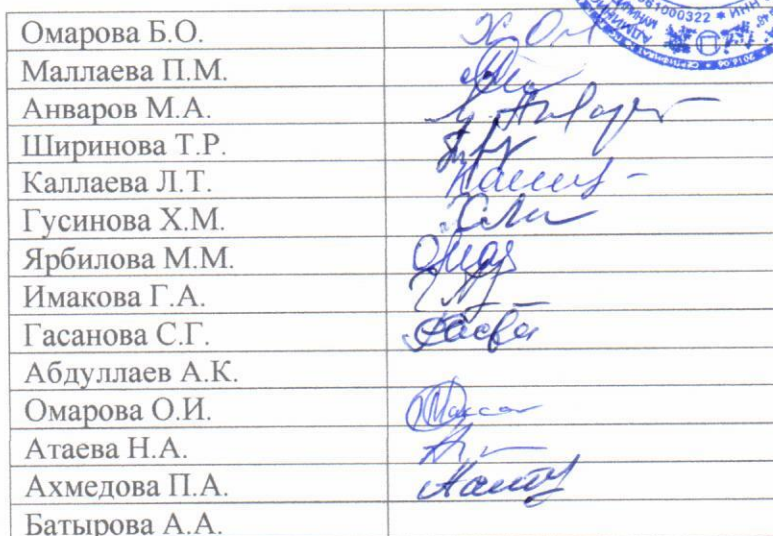 1000322 * ИНН
Омарова Б.О.
Маллаева П.М.
Анваров М.А.
Ширинова Т.Р.
Каллаева Л.Т.
Гусинова Х.М.
Ярбилова М.М.
Имакова Г.А.
Гасанова С.Г.
Абдуллаев А.К.
Омарова О.И.
Атаева Н.А.
Ахмедова П.А.
Батырова А.А.